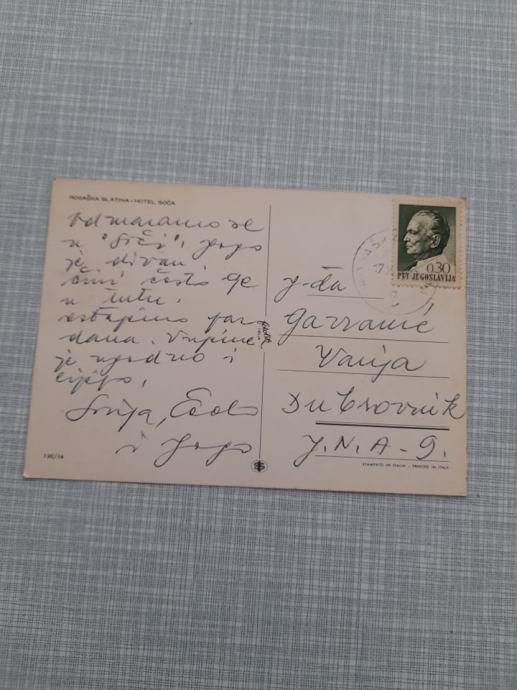 ROGAŠKA SLATINA - HOTEL SOČA
odmaramo se
u "Soči", Jogo
je divan,
čini često
u
ostajemo par
dana. Vrijeme
je ugodno i
lijepo,
i Jogo
130/14
0.30
PTT JUGOSLAVIJA
g-đa
Garzanić
Vanja
Dubrovnik
J.N.A - 9.
STAMPATO IN ITALIA - PRINTED IN ITALY